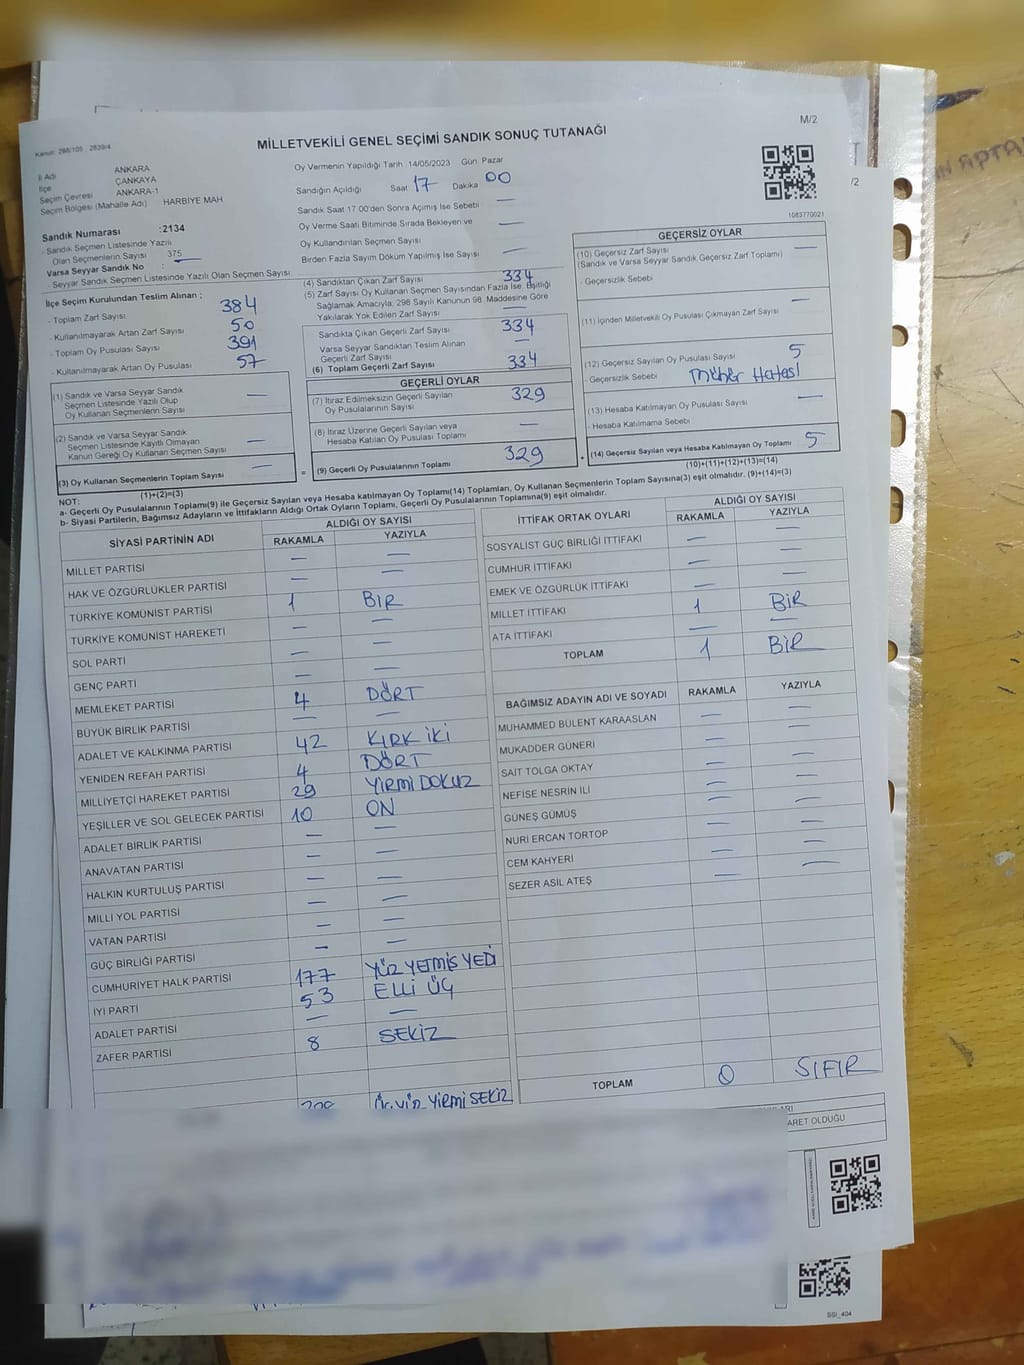 M/2
MİLLETVEKİLİ GENEL SEÇİMİ SANDIK SONUÇ TUTANAĞI
Kanun: 298/105 2839/4
İl Adı ANKARA
İlçe ÇANKAYA
Seçim Çevresi ANKARA-1
Seçim Bölgesi (Mahalle Adı) HARBİYE MAH
Sandık Numarası :2134
- Sandık Seçmen Listesinde Yazılı
Olan Seçmenlerin Sayısı 375
Varsa Seyyar Sandık No :
- Seyyar Sandık Seçmen Listesinde Yazılı Olan Seçmen Sayısı
Oy Vermenin Yapıldığı Tarih 14/05/2023 Gün Pazar
Sandığın Açıldığı Saat 17 Dakika 00
Sandık Saat 17.00'den Sonra Açılmış İse Sebebi —
Oy Verme Saati Bitiminde Sırada Bekleyen ve
Oy Kullandırılan Seçmen Sayısı —
Birden Fazla Sayım Döküm Yapılmış İse Sayısı —
1083770021
İlçe Seçim Kurulundan Teslim Alınan ;
- Toplam Zarf Sayısı 384
- Kullanılmayarak Artan Zarf Sayısı 50
- Toplam Oy Pusulası Sayısı 391
- Kullanılmayarak Artan Oy Pusulası 57
(1) Sandık ve Varsa Seyyar Sandık
Seçmen Listesinde Yazılı Olup
Oy Kullanan Seçmenlerin Sayısı —
(2) Sandık ve Varsa Seyyar Sandık
Seçmen Listesinde Kayıtlı Olmayan
Kanun Gereği Oy Kullanan Seçmen Sayısı —
(3) Oy Kullanan Seçmenlerin Toplam Sayısı —
(1)+(2)=(3)
(4) Sandıktan Çıkan Zarf Sayısı 334
(5) Zarf Sayısı Oy Kullanan Seçmen Sayısından Fazla İse, Eşitliği
Sağlamak Amacıyla, 298 Sayılı Kanunun 98. Maddesine Göre
Yakılarak Yok Edilen Zarf Sayısı —
Sandıkta Çıkan Geçerli Zarf Sayısı 334
Varsa Seyyar Sandıktan Teslim Alınan
Geçerli Zarf Sayısı —
(6) Toplam Geçerli Zarf Sayısı 334
GEÇERLİ OYLAR
(7) İtiraz Edilmeksizin Geçerli Sayılan
Oy Pusulalarının Sayısı 329
(8) İtiraz Üzerine Geçerli Sayılan veya
Hesaba Katılan Oy Pusulası Toplamı —
(9) Geçerli Oy Pusulalarının Toplamı 329
GEÇERSİZ OYLAR
(10) Geçersiz Zarf Sayısı —
(Sandık ve Varsa Seyyar Sandık Geçersiz Zarf Toplamı)
- Geçersizlik Sebebi
(11) İçinden Milletvekili Oy Pusulası Çıkmayan Zarf Sayısı —
(12) Geçersiz Sayılan Oy Pusulası Sayısı 5
- Geçersizlik Sebebi Mühür Hatası
(13) Hesaba Katılmayan Oy Pusulası Sayısı —
- Hesaba Katılmama Sebebi
(14) Geçersiz Sayılan veya Hesaba Katılmayan Oy Toplamı 5
(10)+(11)+(12)+(13)=(14)
NOT:
a- Geçerli Oy Pusulalarının Toplamı(9) ile Geçersiz Sayılan veya Hesaba katılmayan Oy Toplamı(14) Toplamları, Oy Kullanan Seçmenlerin Toplam Sayısına(3) eşit olmalıdır. (9)+(14)=(3)
b- Siyasi Partilerin, Bağımsız Adayların ve İttifakların Aldığı Ortak Oyların Toplamı, Geçerli Oy Pusulalarının Toplamına(9) eşit olmalıdır.
SİYASİ PARTİNİN ADI ALDIĞI OY SAYISI
RAKAMLA YAZIYLA
MİLLET PARTİSİ — —
HAK VE ÖZGÜRLÜKLER PARTİSİ — —
TÜRKİYE KOMÜNİST PARTİSİ 1 BİR
TÜRKİYE KOMÜNİST HAREKETİ — —
SOL PARTİ — —
GENÇ PARTİ — —
MEMLEKET PARTİSİ 4 DÖRT
BÜYÜK BİRLİK PARTİSİ — —
ADALET VE KALKINMA PARTİSİ 42 KIRK İKİ
YENİDEN REFAH PARTİSİ 4 DÖRT
MİLLİYETÇİ HAREKET PARTİSİ 29 YİRMİ DOKUZ
YEŞİLLER VE SOL GELECEK PARTİSİ 10 ON
ADALET BİRLİK PARTİSİ — —
ANAVATAN PARTİSİ — —
HALKIN KURTULUŞ PARTİSİ — —
MİLLİ YOL PARTİSİ — —
VATAN PARTİSİ — —
GÜÇ BİRLİĞİ PARTİSİ — —
CUMHURİYET HALK PARTİSİ 177 YÜZ YETMİŞ YEDİ
İYİ PARTİ 53 ELLİ ÜÇ
ADALET PARTİSİ — —
ZAFER PARTİSİ 8 SEKİZ
YİRMİ SEKİZ
İTTİFAK ORTAK OYLARI ALDIĞI OY SAYISI
RAKAMLA YAZIYLA
SOSYALİST GÜÇ BİRLİĞİ İTTİFAKI — —
CUMHUR İTTİFAKI — —
EMEK VE ÖZGÜRLÜK İTTİFAKI — —
MİLLET İTTİFAKI 1 BİR
ATA İTTİFAKI — —
TOPLAM 1 BİR
BAĞIMSIZ ADAYIN ADI VE SOYADI RAKAMLA YAZIYLA
MUHAMMED BÜLENT KARAASLAN — —
MUKADDER GÜNERİ — —
SAİT TOLGA OKTAY — —
NEFİSE NESRİN İLİ — —
GÜNEŞ GÜMÜŞ — —
NURİ ERCAN TORTOP — —
CEM KAHYERİ — —
SEZER ASİL ATEŞ — —
TOPLAM 0 SIFIR
OLDUĞU
/2
SSİ_404